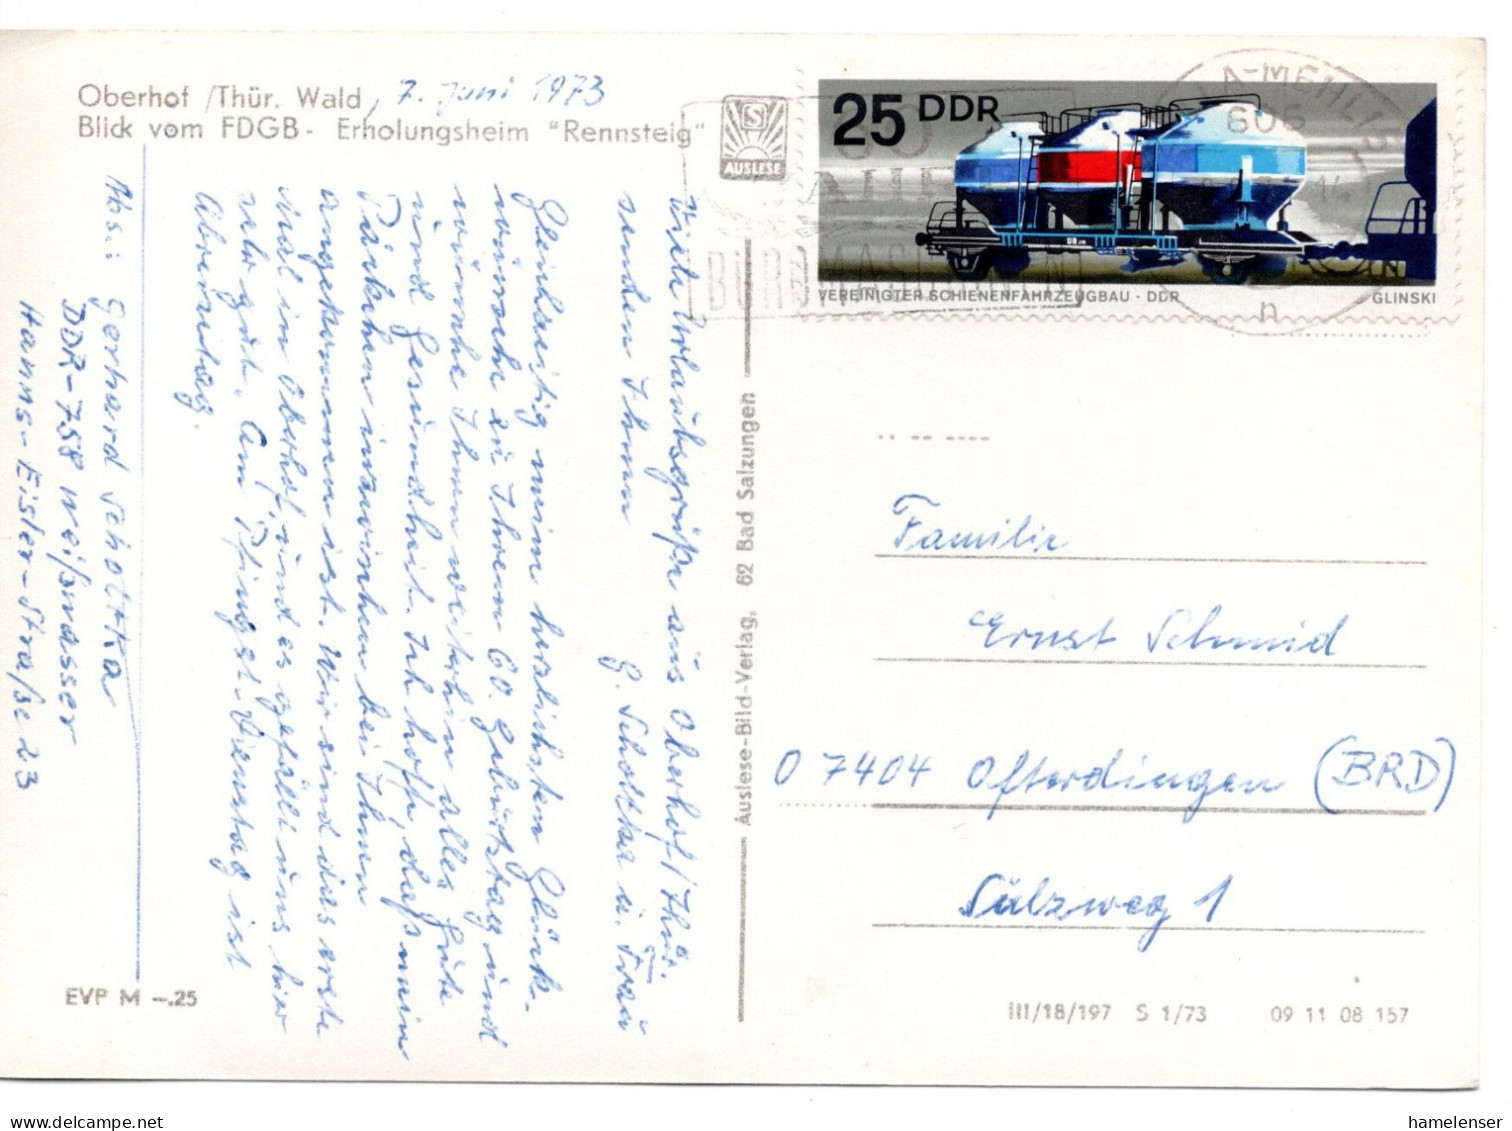 Oberhof /Thür. Wald, 7. Juni 1973
Blick vom FDGB- Erholungsheim "Rennsteig"
Viele Urlaubsgrüße aus Oberhof/Thür.
senden Ihnen G. Schottka u. Frau
Gleichzeitig meine herzlichsten Glück-
wünsche zu Ihrem 60. Geburtstag und
wünsche Ihnen weiterhin alles Gute
und Gesundheit. Ich hoffe, daß mein
Päckchen inzwischen bei Ihnen
angekommen ist. Wir sind das erste
Mal in Oberhof, und es gefällt uns hier
sehr gut. Am Pfingst-Dienstag ist
Abreisetag.
Abs.: Gerhard Schottka
DDR-758 Weißwasser
Hanns-Eisler-Straße 23
EVP M -.25
Auslese-Bild-Verlag, 62 Bad Salzungen
S
AUSLESE
25 DDR
VEREINIGTER SCHIENENFAHRZEUGBAU - DDR
GLINSKI
60
JAHRE
BÜROMASCHINEN
A-MEHLIS
606
14
n
Familie
Ernst Schmid
O 7404 Ofterdingen (BRD)
Sülzweg 1
III/18/197 S 1/73 09 11 08 157
hamelenser